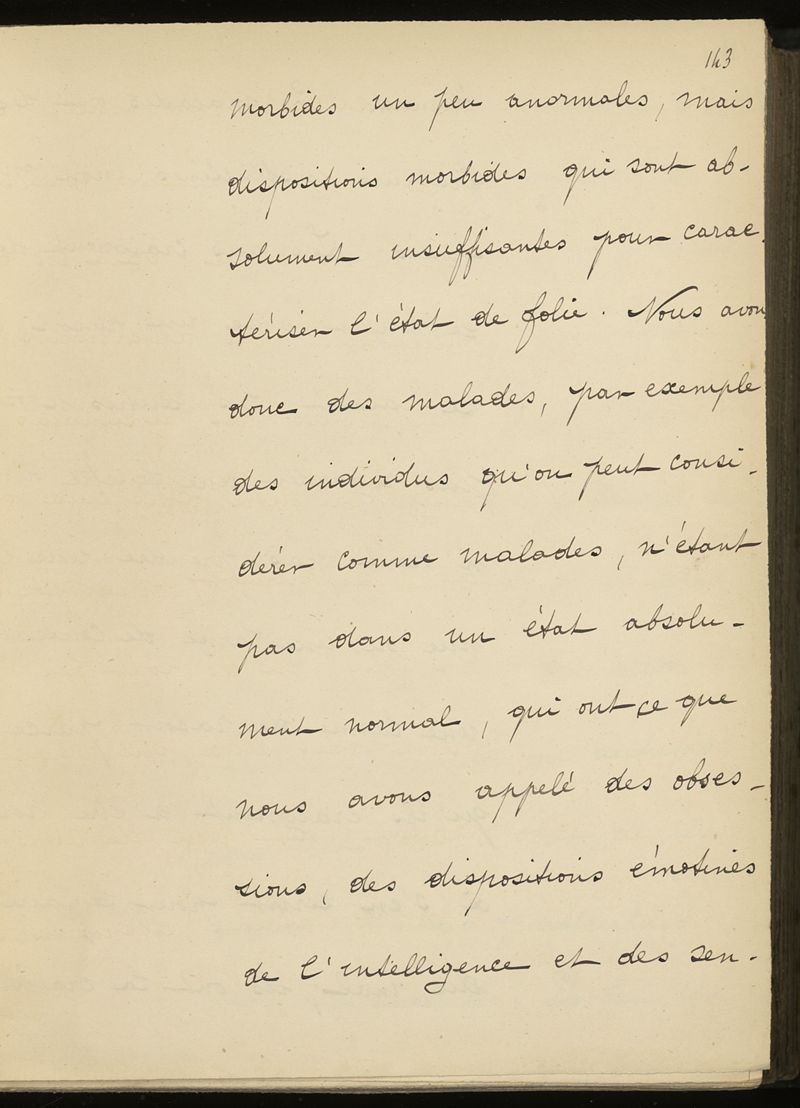 143
morbides un peu anormales, mais
dispositions morbides qui sont ab-
solument insuffisantes pour carac-
tériser l'état de folie. Nous avons
donc des malades, par exemple
des individus qu'on peut consi-
dérer comme malades, n'étant
pas dans un état absolu-
ment normal, qui ont ce que
nous avons appelé des obses-
sions, des dispositions émotives
de l'intelligence et des sen-